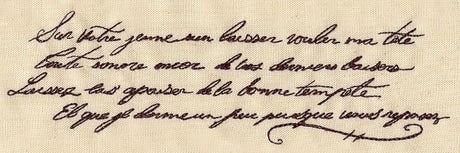 Sur votre jeune sein laisser rouler ma tête
Toute sonore encor de vos derniers baisers
Laissez las apaiser de la bonne tempête
Et que je dorme un peu puisque vous reposez